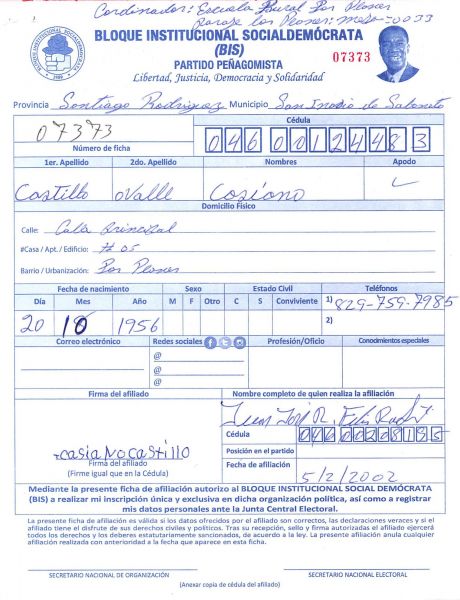 Cordinador: Escuela Rural Los Ploses
Paraje los Ploses: mesa-0033
BLOQUE INSTITUCIONAL SOCIALDEMÓCRATA
(BIS)
PARTIDO PEÑAGOMISTA
07373
Libertad, Justicia, Democracia y Solidaridad
Provincia Santiago Rodriguez Municipio San Inacio de Sabaneta
07373
Número de ficha
Cédula
046 0012448 3
1er. Apellido 2do. Apellido Nombres Apodo
Castillo Ovalle Casiano
Domicilio Físico
Calle: Calle Principal
#Casa / Apt. / Edificio: # 05
Barrio / Urbanización: Los Ploses
Fecha de nacimiento Sexo Estado Civil Teléfonos
Día Mes Año M F Otro C S Conviviente 1) 829-759-7985
20 10 1956 2)
Correo electrónico Redes sociales Profesión/Oficio Conocimientos especiales
@
@
@
Firma del afiliado Nombre completo de quien realiza la afiliación
Cédula
casiaNocastillo
Posición en el partido
Firma del afiliado
(Firme igual que en la Cédula)
Fecha de afiliación
5/2/2002
Mediante la presente ficha de afiliación autorizo al BLOQUE INSTITUCIONAL SOCIAL DEMÓCRATA
(BIS) a realizar mi inscripción única y exclusiva en dicha organización política, así como a registrar
mis datos personales ante la Junta Central Electoral.
La presente ficha de afiliación es válida si los datos ofrecidos por el afiliado son correctos, las declaraciones veraces y si el
afiliado tiene el disfrute de sus derechos civiles y políticos. Tras su recepción, sello y firma autorizadas el afiliado ejercerá
todos los derechos y los deberes estatutariamente sancionados, de acuerdo a la ley. La presente afiliación anula cualquier
afiliación realizada con anterioridad a la fecha que aparece en esta ficha.
SECRETARIO NACIONAL DE ORGANIZACIÓN SECRETARIO NACIONAL ELECTORAL
(Anexar copia de cédula del afiliado)